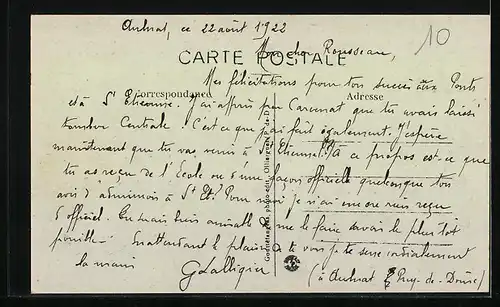 Aulnat, ce 22 août 1922
10
CARTE POSTALE
Mon cher Rousseau,
Mes félicitations pour ton succès aux Ponts
Correspondance
Adresse
et à St Etienne. J'ai appris par que tu avais laissé
tomber Centrale. C'est ce que j'ai fait également. J'espère
maintenant que tu vas venir à St Etienne. A ce propos est-ce que
tu as reçu de l'Ecole ou d'une façon officielle quelconque ton
avis d'admission à St Et. Pour moi je n'ai encore rien reçu
d'officiel. Tu serais bien aimable de me le faire savoir le plus tôt
possible. En attendant le plaisir de te voir je te serre cordialement
la main
G Lalligier
(à Aulnat Puy-de-Dôme)